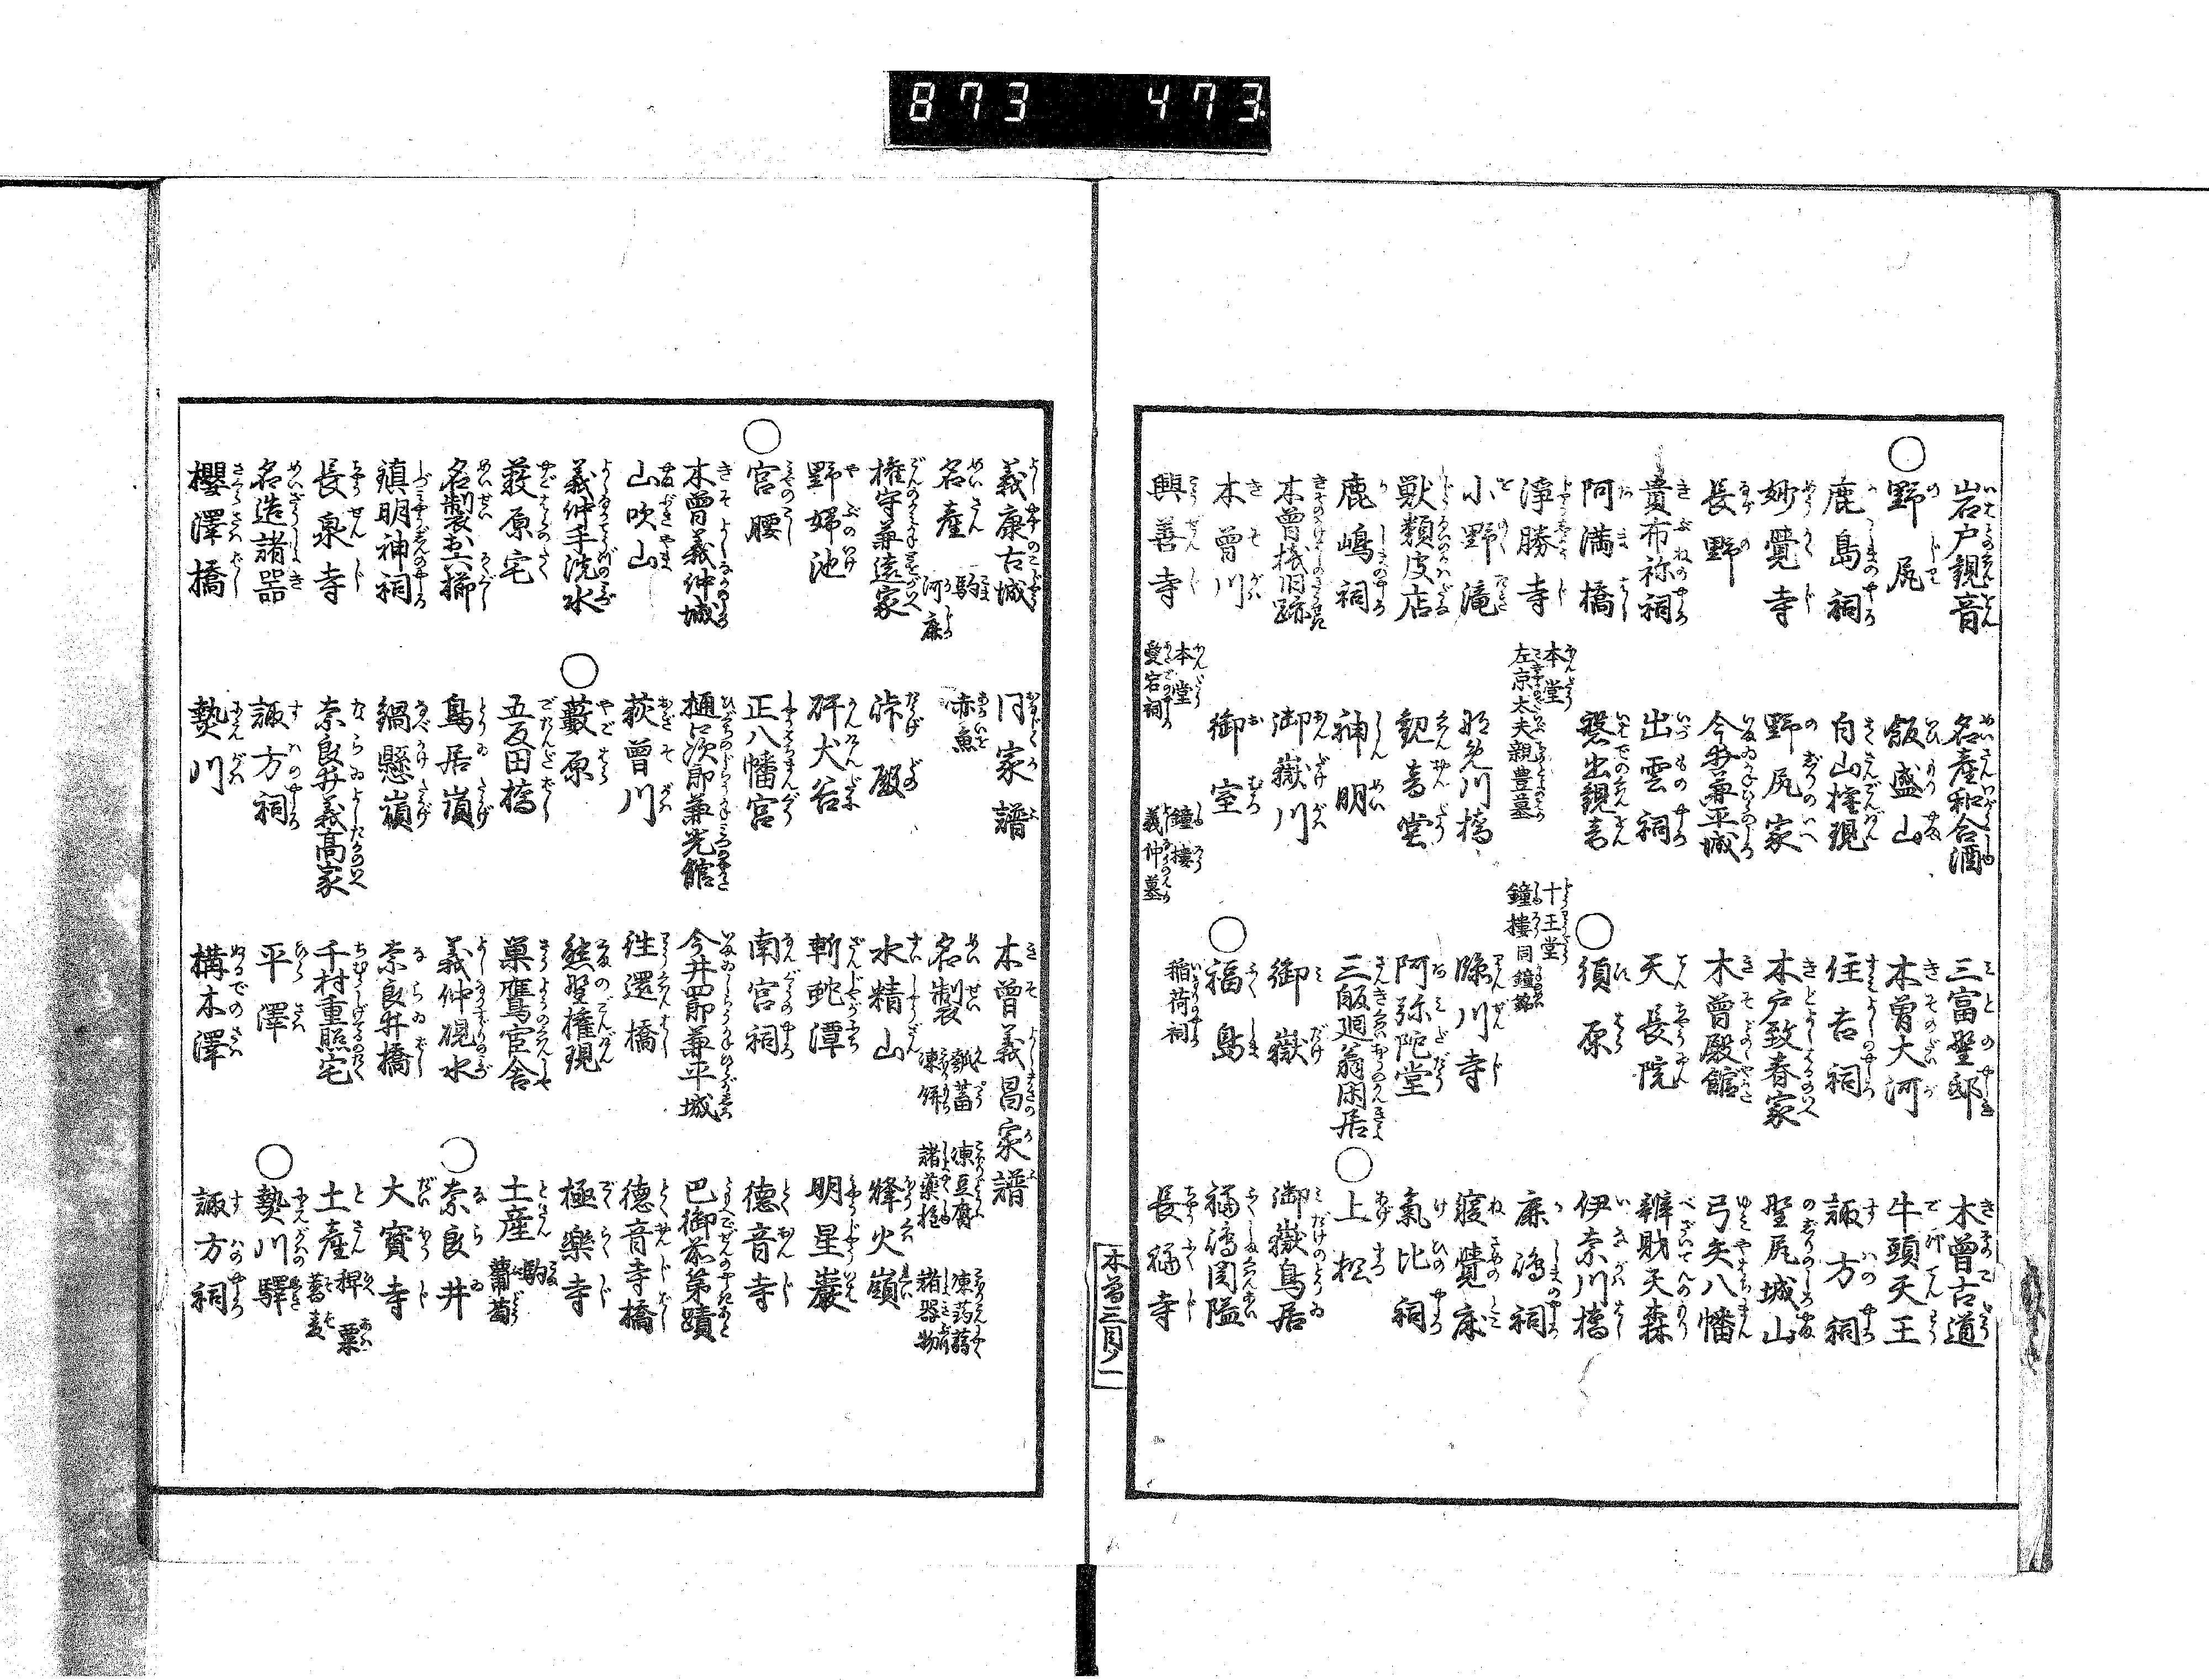 873 473
岩戸観音 名産和合酒 三富野邸 木曽古道
○野尻 飯盛山 木曽大河 牛頭天王
鹿島祠 白山権現 住吉祠 諏方祠
妙覺寺 野尻家 木戸致春家 野尻城山
長野 今井兼平城 木曽殿館 弓矢八幡
貴布祢祠 出雲祠 天長院 辨財天森
阿満橋 磐出観音 ○須原 伊奈川橋
淨勝寺 本堂 左京太夫親豊墓 十王堂 鐘樓同鐘銘 鹿嶋祠
小野滝 臨川寺 寝覺床
獣類皮店 観音堂 阿弥陀堂 氣比祠
鹿嶋祠 神明 三皈廻翁閑居 ○上松
木曽桟旧跡 御嶽川 御嶽 御嶽鳥居
木曽川 御室 ○福島 福嶋関隘
興善寺 本堂 愛宕祠 鐘樓 義仲墓 稲荷祠 長福寺
木曽三目ノ一
義康古城 同家譜 木曽義昌家譜
名産 駒 河鹿 赤魚 名製 凍餅 凍豆腐 諸薬種 凍蒟蒻 諸器物
権守兼遠家 峠殿 水精山 烽火嶺
野婦池 犬谷 斬蛇潭 明星巖
○宮腰 正八幡宮 南宮祠 德音寺
木曽義仲城 樋口次郎兼光館 今井四郎兼平城 巴御前第蹟
山吹山 荻曽川 往還橋 德音寺橋
義仲手洗水 ○藪原 熊野権現 極樂寺
荻原宅 五反田橋 巣鷹官舎 土産 駒 葡萄
名製お六櫛 鳥居嶺 義仲硯水 ○奈良井
鎮明神祠 鍋懸嶺 奈良井橋 大寳寺
長泉寺 奈良井義高家 千村重照宅 土産 稗 粟 蕎麦
名造諸器 諏方祠 平澤 ○贄川驛
櫻澤橋 贄川 構木澤 諏方祠